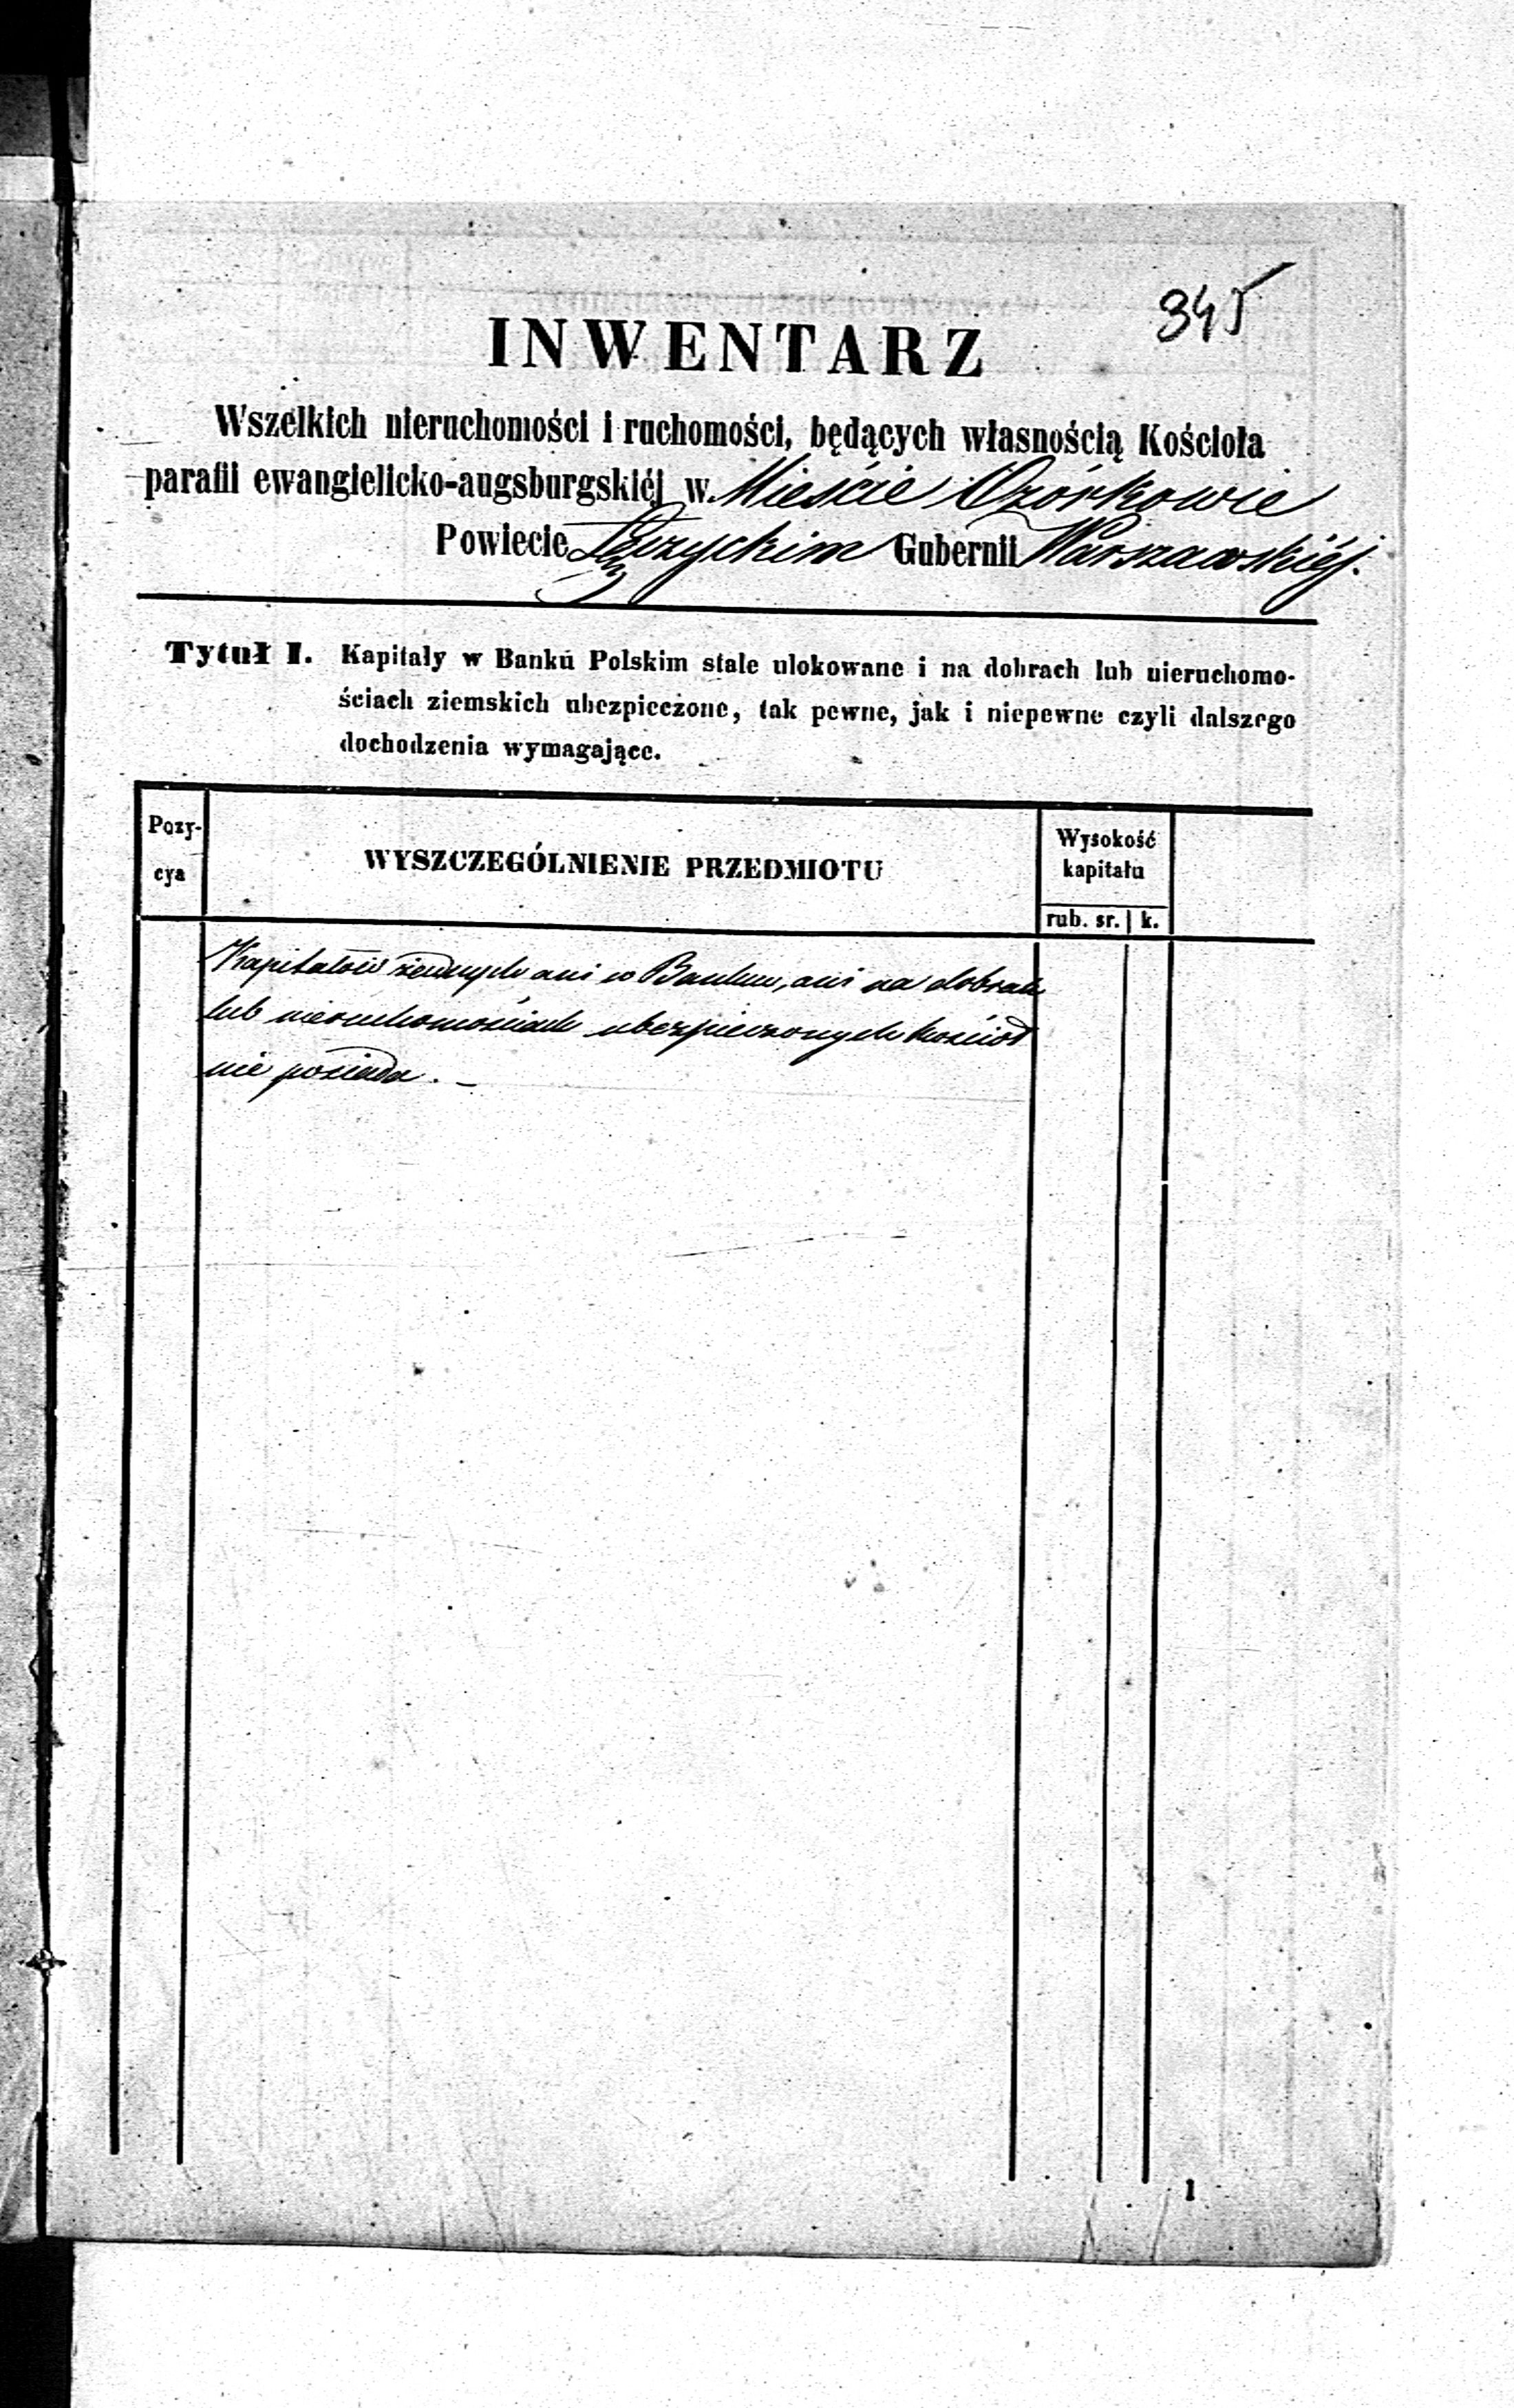 345
INWENTARZ
Wszelkich nieruchomości i ruchomości, będących własnością Kościoła
parafii ewangielicko-augsburgskiéj w Mieście Ozórkowie
Powiecie Łęczyckim Gubernii Warszawskiéj.
Tytuł I. Kapitały w Banku Polskim stale ulokowane i na dobrach lub nieruchomo-
ściach ziemskich ubezpieczone, tak pewne, jak i niepewne czyli dalszego
dochodzenia wymagające.
Pozy-
cya
WYSZCZEGÓLNIENIE PRZEDMIOTU
Wysokość
kapitału
rub. sr. k.
Kapitałów żadnych ani w Banku, ani na dobrach
lub nieruchomościach ubezpieczonych kościoł
nie posiada. –
1